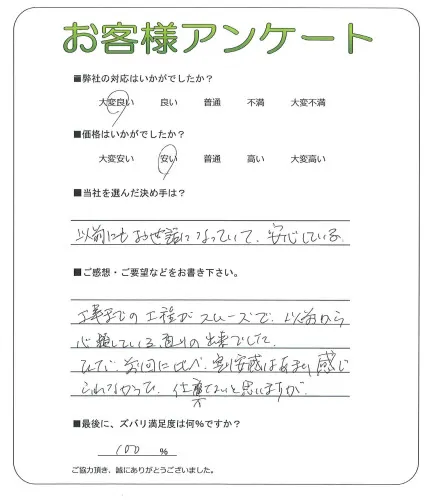 お客様アンケート
■弊社の対応はいかがでしたか?
大変良い 良い 普通 不満 大変不満
■価格はいかがでしたか?
大変安い 安い 普通 高い 大変高い
■当社を選んだ決め手は?
以前にもお世話になっていて、安心している。
■ご感想・ご要望などをお書き下さい。
工事までの工程がスムーズで、以前から
信頼している通りの出来でした。
ただ、前回に比べ、割安感はあまり感じ
られなかった。仕事でないと思いますが、
■最後に、ズバリ満足度は何%ですか?
100 %
ご協力頂き、誠にありがとうございました。